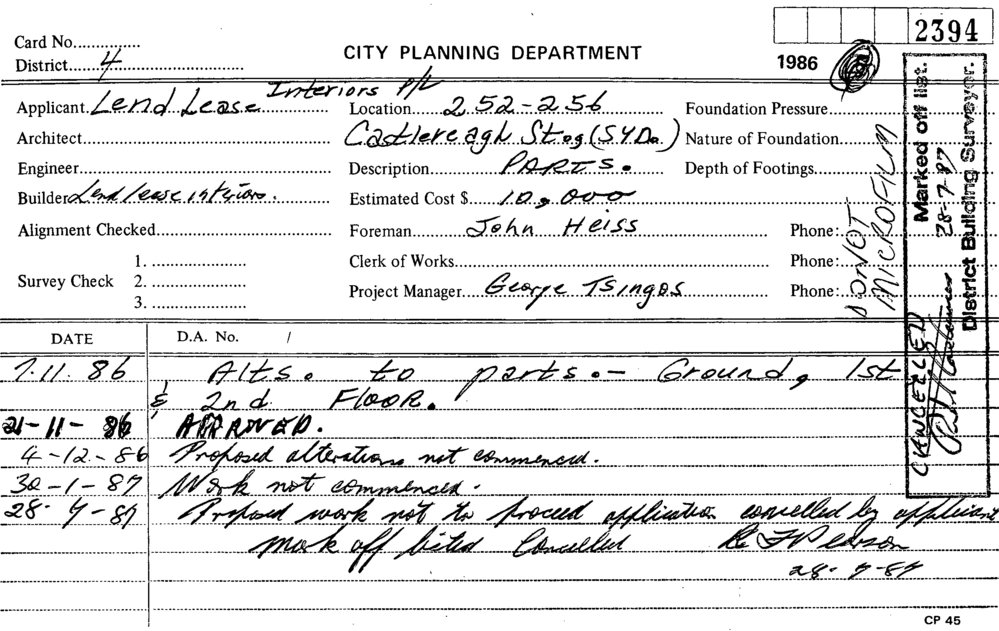 2394
Card No..............
District......4
CITY PLANNING DEPARTMENT
1986
Applicant Lend Lease Interiors P/L
Location 252-256
Foundation Pressure
Architect
Castlereagh St
Nature of Foundation
Engineer
Description PARTS.
Depth of Footings
Builder Lend lease interiors.
Estimated Cost $ 10,000
Alignment Checked
Foreman John Heiss
Phone:
Survey Check
1.
2.
3.
Clerk of Works
Phone:
Project Manager George Tsingos
Phone:
DO NOT MICROFILM
Marked off list.
28-7-87
District Building Surveyor.
CANCELLED
DATE
D.A. No. /
7.11.86 Alts. to parts.- Ground, 1st
& 2nd FLOOR.
21-11-86 APPROVED.
4-12-86 Proposed alterations not commenced.
30-1-87 Work not commenced.
28-7-87 Proposed work not to proceed application cancelled by applicant
Mark off Cancelled
28-7-87
CP 45